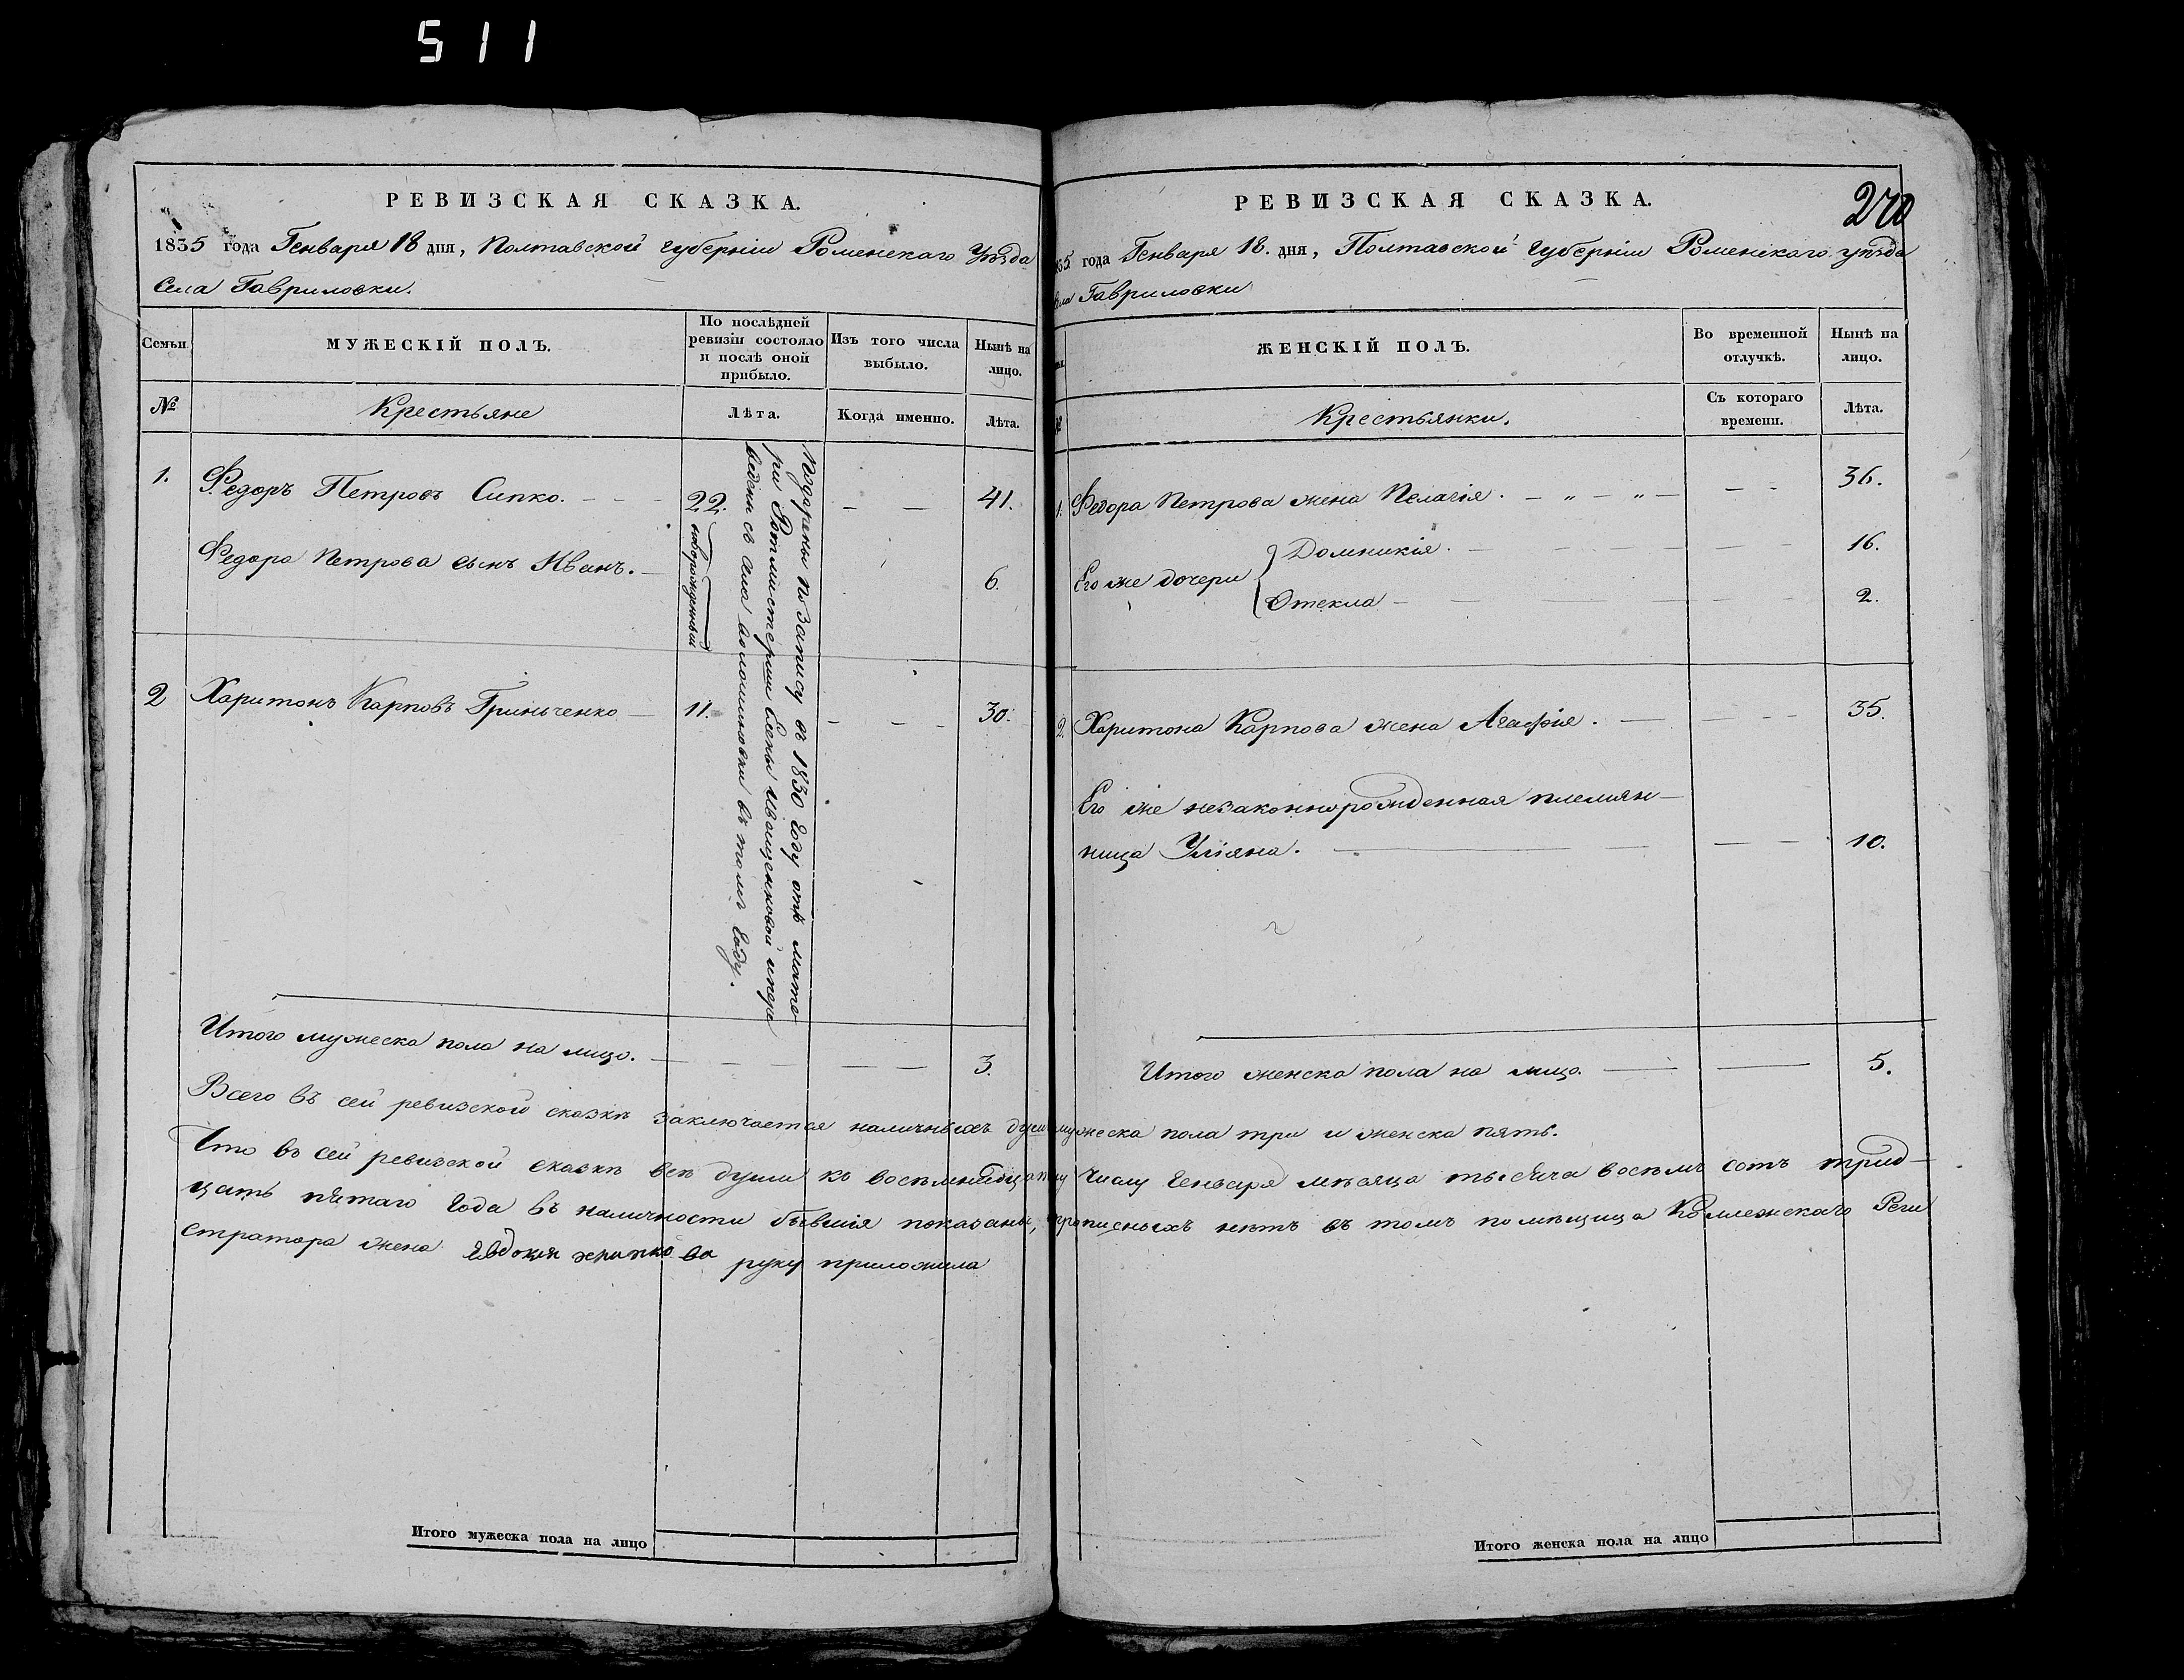 511
РЕВИЗСКАЯ СКАЗКА.
1835 года Генваря 18 дня, Полтавской губерніи Роменскаго Уѣзда
Села Гавриловки.
Семьи
МУЖЕСКІЙ ПОЛЪ.
По послѣдней
ревизіи состояло
и послѣ оной
прибыло.
Изъ того числа
выбыло.
Нынѣ на
лицо.
№
Крестьяне
Лѣта.
Когда именно.
Лѣта.
1. Федоръ Петровъ Сипко. - - - 22. - - 41.
Федора Петрова сынъ Иванъ. - новорожденный 6.
2 Харитонъ Карповъ Гриньченко - 11. - - - 30.
Подарены по Записи въ 1830 году отъ мате-
ри Ротмистерши Елены Иващенковой и пере
ведены съ села в томъ году.
Итого мужеска пола на лицо. - - - - - 3.
Итого мужеска пола на лицо
270
РЕВИЗСКАЯ СКАЗКА.
1835 года Генваря 18. дня, Полтавской губерніи Роменскаго уѣзда
Села Гавриловки
ЖЕНСКІЙ ПОЛЪ.
Во временной
отлучкѣ.
Нынѣ на
лицо.
№
Крестьянки.
Съ котораго
времени.
Лѣта.
1. Федора Петрова жена Пелагія. - „ - „ - - - 36.
Его же дочери
Домникія. - - - 16.
Өтекла - - - 2.
2. Харитона Карпова жена Агафія. - - - - 35.
Его же незаконнорожденная племян-
ница Уліяна. - - - 10.
Итого женска пола на лицо. - - 5.
Всего въ сей ревизской сказкѣ заключается наличныхъ душъ мужеска пола три и женска пять.
Что въ сей ревизской сказкѣ всѣ души къ восемнадцатому числу Генваря мѣсяца тысяча восемь сотъ трид-
цать пятаго года въ наличности бывшія показаны, прописныхъ нѣтъ въ томъ помѣщица Коллежскаго Реги
стратора жена Евдокия руку приложила
Итого женска пола на лицо